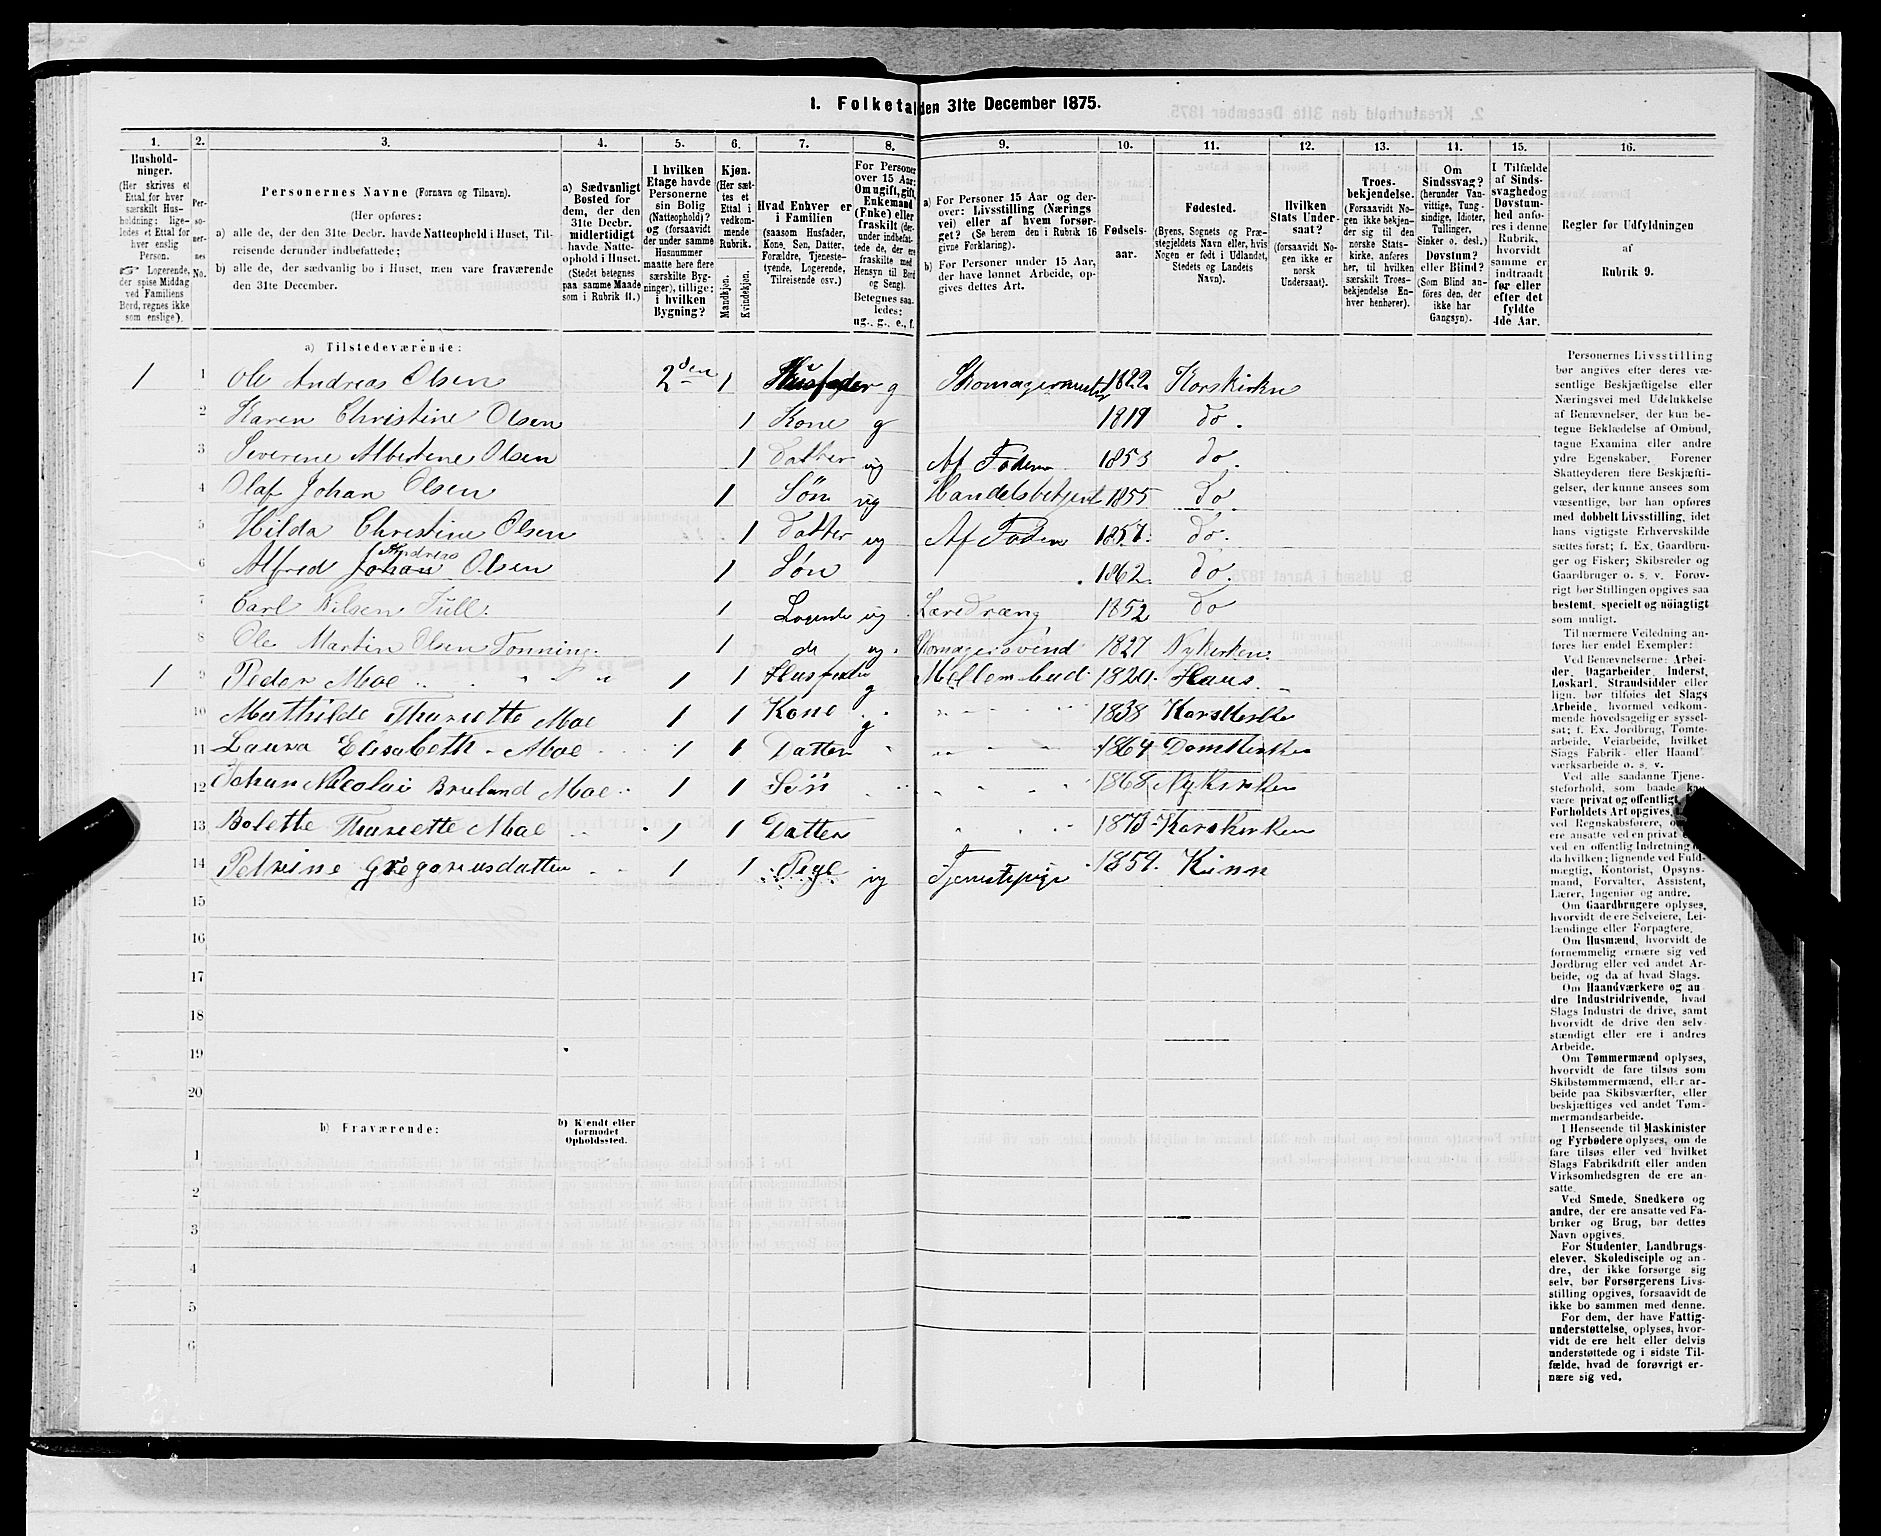 1. Folketal den 31te December 1875.
1. 2. 3. 4. 5. 6. 7. 8. 9. 10. 11. 12. 13. 14. 15. 16.
Husholdninger. (Her skrives et Ettal for hver særskilt Husholdning; ligeledes et Ettal for hver enslig Person. ☞ Logerende, der spise Middag ved Familiens Bord, regnes ikke som enslige).
Personernes No.
Personernes Navne (Fornavn og Tilnavn).
(Her opføres:
a) alle de, der den 31te Decbr. havde Natteophold i Huset, Tilreisende derunder indbefattede;
b) alle de, der sædvanlig bo i Huset, men vare fraværende den 31te December.
a) Sædvanligt Bosted for dem, der den 31te Decbr. midlertidigt havde Natteophold i Huset. (Stedet betegnes paa samme Maade som i Rubrik 11.)
I hvilken Etage havde Personerne sin Bolig (Natteophold)? og (forsaavidt der under samme Husnummer maatte høre flere særskilte Bygninger), tillige: i hvilken Bygning?
Kjøn. (Her sættes et Ettal i vedkommende Rubrik.
Mandkjøn. Kvindekjøn.
Hvad Enhver er i Familien (saasom Husfader, Kone, Søn, Datter, Forældre, Tjenestetyende, Logerende, Tilreisende osv.)
For Personer over 15 Aar: Om ugift, gift, Enkemand (Enke) eller fraskilt (derunder indbefattede de, der ere fraskilte med Hensyn til Bord og Seng). Betegnes saaledes: ug., g., e., f.
a) For Personer 15 Aar og derover: Livsstilling (Næringsvei) eller af hvem forsørget? (Se herom den i Rubrik 16 givne Forklaring).
b) For Personer under 15 Aar, der have lønnet Arbeide, opgives dettes Art.
Fødselsaar.
Fødested. (Byens, Sognets og Præstegjeldets Navn eller, hvis Nogen er født i Udlandet, Stedets og Landets Navn).
Hvilken Stats Undersaat? (forsaavidt Nogen ikke er norsk Undersaat).
Troesbekjendelse. (Forsaavidt Nogen ikke bekjender sig til den norske Statskirke, anføres her, til hvilken særskilt Troesbekjendelse Enhver henhører).
Om Sindssvag? (herunder Vanvittige, Tungsindige, Idioter, Tullinger, Sinker o. desl.) Døvstum? eller Blind? (Som Blind anføres den, der ikke har Gangsyn).
I Tilfælde af Sindssvaghed og Døvstumhed anføres i denne Rubrik, hvorvidt samme er indtraadt før eller efter det fyldte 4de Aar.
Regler for Udfyldningen af Rubrik 9.
a) Tilstedeværende:
1 1 Ole Andreas Olsen 2den 1 Husfader g Skomagermester 1822 Korskirken
2 Karen Christine Olsen 1 Kone g 1819 do.
3 Severene Albertene Olsen 1 Datter ug Af Faderen 1853 do.
4 Olaf Johan Olsen 1 Søn ug Handelsbetjent 1855 do
5 Hilda Christine Olsen 1 Datter ug Af Faderen 1857. do.
6 Alfred Johan Andreas Olsen 1 Søn 1862. do.
7 Carl Nilsen Tull. 1 Logerende ug Læredræng 1852 do
8 Ole Martin Olsen Tonning. 1 do ug. Skomagersvend 1827 Nykirken.
1 9 Peder Moe 1 1 Husfader g Mellembud 1820. Haus
10 Mathilde Thariette Moe 1 1 Kone g " 1838 Korskirken
11 Laura Elisabeth Moe 1 1 Datter " 1864 Domkirken
12 Johan Nicolai Bruland Moe 1 1 Søn " 1868 Nykirken
13 Bolette Thariette Moe 1 1 Datter " 1873 Korskirken
14 Petrine Gregoriusdatter 1 1 Pige ug Tjenestepige 1859. Kinn
15
16
17
18
19
20
b) Fraværende:
b) Kjendt eller formodet Opholdssted.
1
2
3
4
5
6
Personernes Livsstilling
bør angives efter deres væ-
sentlige Beskjæftigelse eller
Næringsvei med Udelukkelse
af Benævnelser, der kun be-
tegne Beklædelse af Ombud,
tagne Examina eller andre
ydre Egenskaber. Forener
Skatteyderen flere Beskjæfti-
gelser, der kunne ansees som
væsentlige, bør han opføres
med dobbelt Livsstilling, idet
hans vigtigste Erhvervskilde
sættes først; f. Ex. Gaardbru-
ger og Fisker; Skibsreder og
Gaardbruger o. s. v. Forøv-
rigt bør Stillingen opgives saa
bestemt, specielt og nøiagtigt
som muligt.
Til nærmere Veiledning an-
føres her endel Exempler:
Ved Benævnelserne: Arbei-
der, Dagarbeider, Inderst,
Løskarl, Strandsidder eller
lign. bør tilføies det Slags
Arbeide, hvormed vedkom-
mende hovedsagelig er syssel-
sat; f. Ex. Jordbrug, Tomte-
arbeide, Veiarbeide, hvilket
Slags Fabrik- eller Haand-
værksarbeide o. s. v.
Ved alle saadanne Tjene-
steforhold, som baade kan
være privat og offentligt,
Forholdets Art opgives,
ved Regnskabsførere,
ere ansatte ved en privat
ved en offentlig Indretning
da hvilken; lignende ved Fuld-
mægtig, Kontorist, Opsyns-
mand, Forvalter, Assistent,
Lærer, Ingeniør og andre.
Om Gaardbrugere oplyses,
hvorvidt de ere Selveiere, Lei-
lændinge eller Forpagtere.
Om Husmænd, hvorvidt de
fornemmelig ernære sig ved
Jordbrug eller ved andet Ar-
beide, og da af hvad Slags.
Om Haandværkere og an-
dre Industridrivende, hvad
Slags Industri de drive, samt
hvorvidt de drive den selv-
stændigt eller ere i andres
Arbeide.
Om Tømmermænd oplyses,
hvorvidt de fare tilsøs som
Skibstømmermænd, eller ar-
beide paa Skibsværfter, eller
beskjæftiges ved andet Tøm-
mermandsarbeide.
I Henseende til Maskinister
og Fyrbødere oplyses, om de
fare tilsøs eller ved hvilket
Slags Fabrikdrift eller anden
Virksomhedsgren de ere an-
satte.
Ved Smede, Snedkere og
andre, der ere ansatte ved Fa-
briker og Brug, bør dettes
Navn opgives.
For Studenter, Landbrugs-
elever, Skoledisciple og an-
dre, der ikke forsørge sig
selv, bør Forsørgerens Livs-
stilling opgives, forsaavidt de
ikke bo sammen med denne.
For dem, der have Fattig-
understøttelse, oplyses, hvor-
vidt de ere helt eller delvis
understøttede og i sidste Til-
fælde, hvad de forøvrigt er-
nære sig ved.